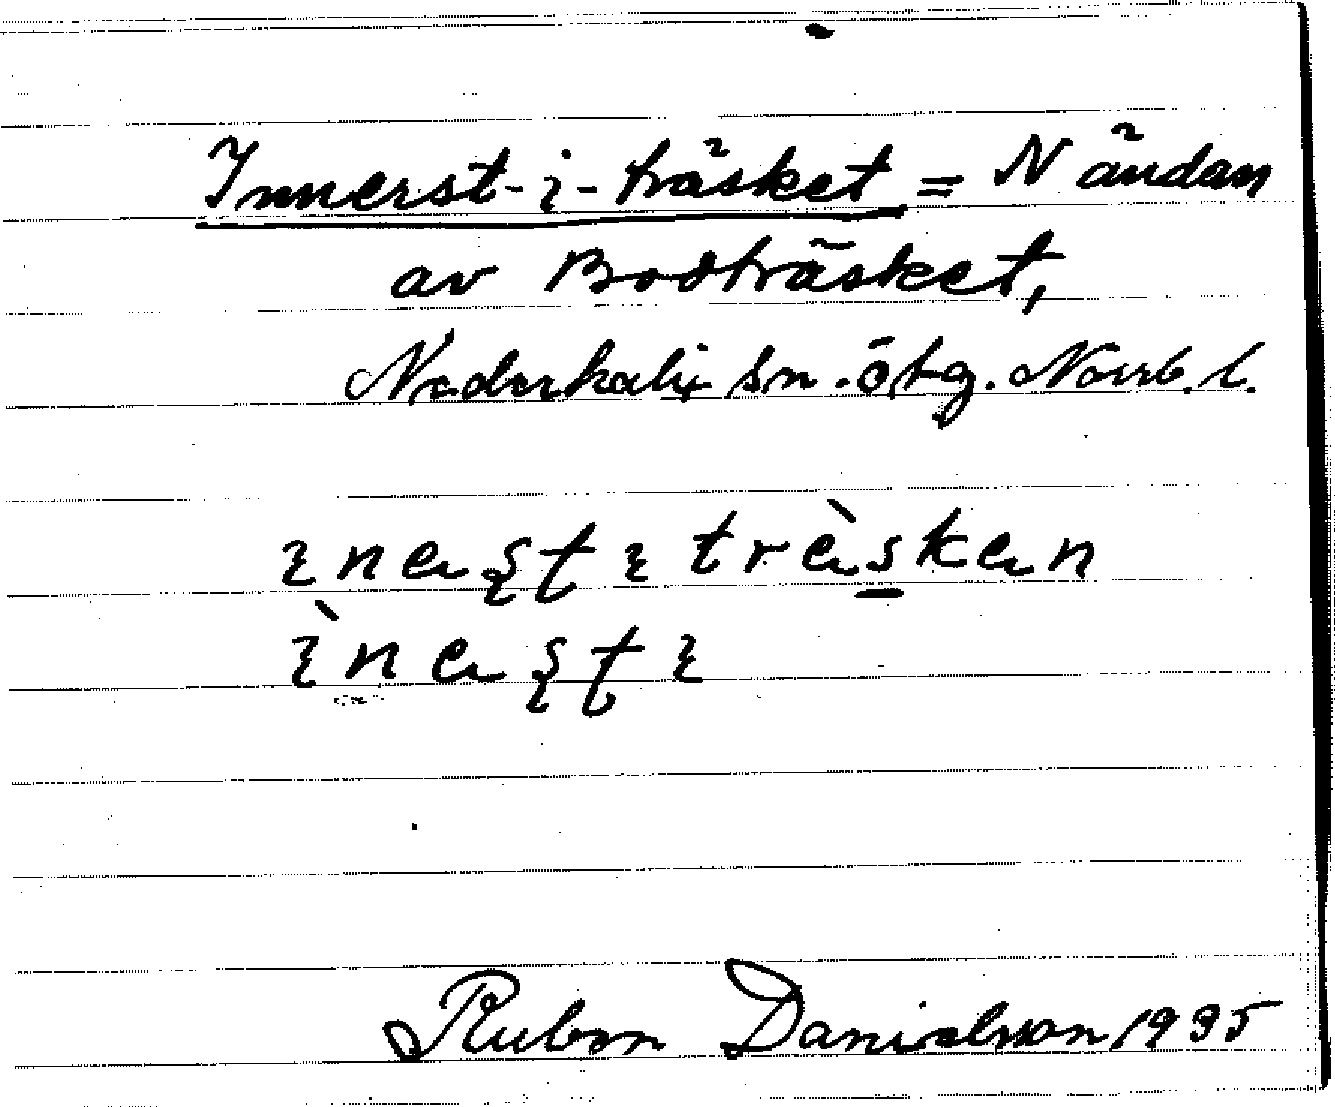 Innerst-i-träsket = N ändan
av Bodträsket,
Nederkalix sn. ötg. Norrb. l.
ɩneʂʈ ɩ trèsken
ɩ̀neʂʈ ɩ
Ruben Danielsson 1935